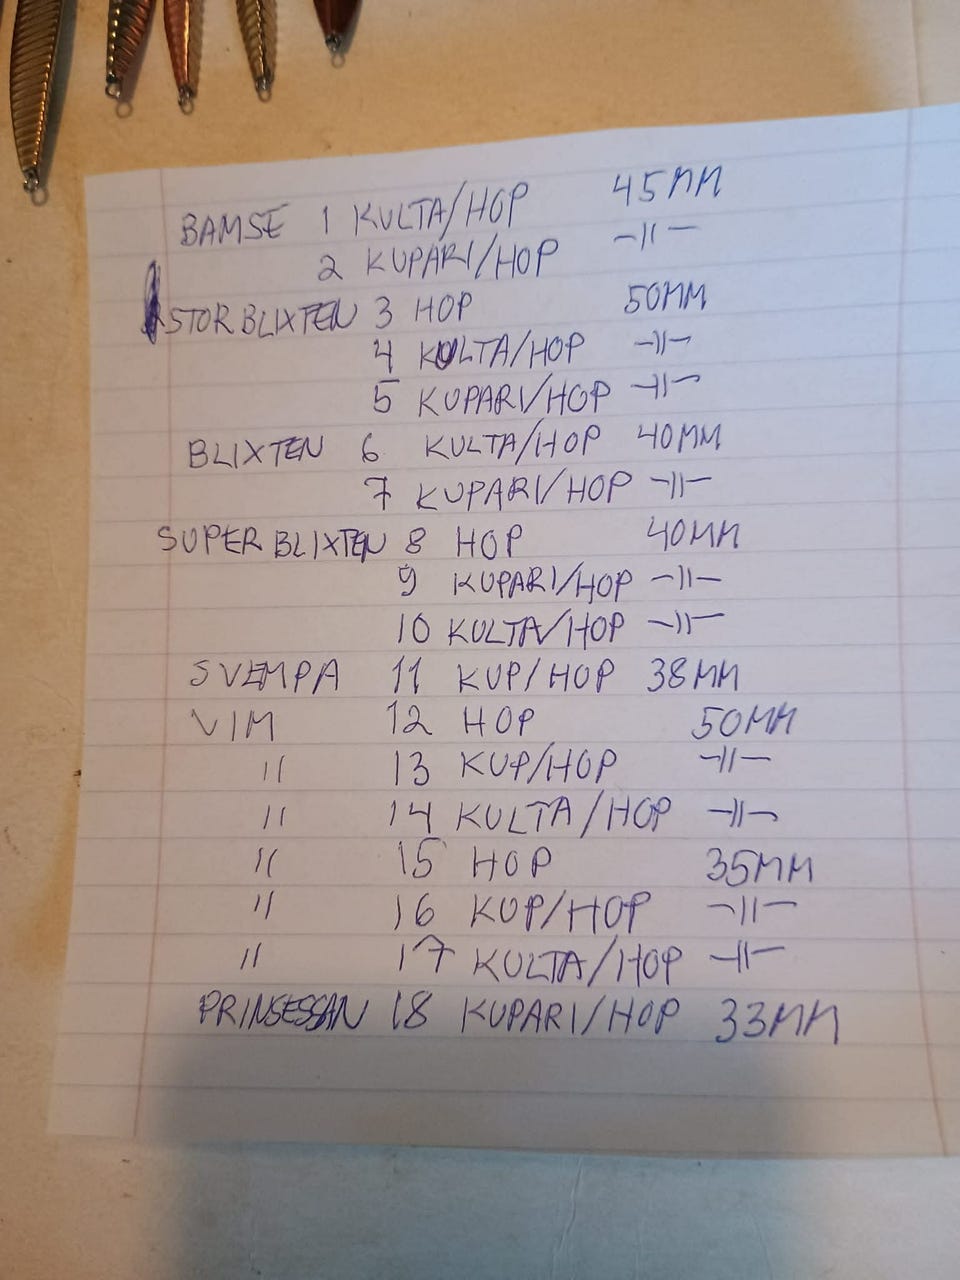 BAMSE 1 KULTA/HOP 45MM
2 KUPARI/HOP —||—
STORBLIXTEN 3 HOP 50MM
4 KULTA/HOP —||—
5 KUPARI/HOP —||—
BLIXTEN 6 KULTA/HOP 40MM
7 KUPARI/HOP —||—
SUPERBLIXTEN 8 HOP 40MM
9 KUPARI/HOP —||—
10 KULTA/HOP —||—
SVEMPA 11 KUP/HOP 38MM
VIM 12 HOP 50MM
|| 13 KUP/HOP —||—
|| 14 KULTA/HOP —||—
|| 15 HOP 35MM
|| 16 KUP/HOP —||—
|| 17 KULTA/HOP —||—
PRINSESSAN 18 KUPARI/HOP 33MM